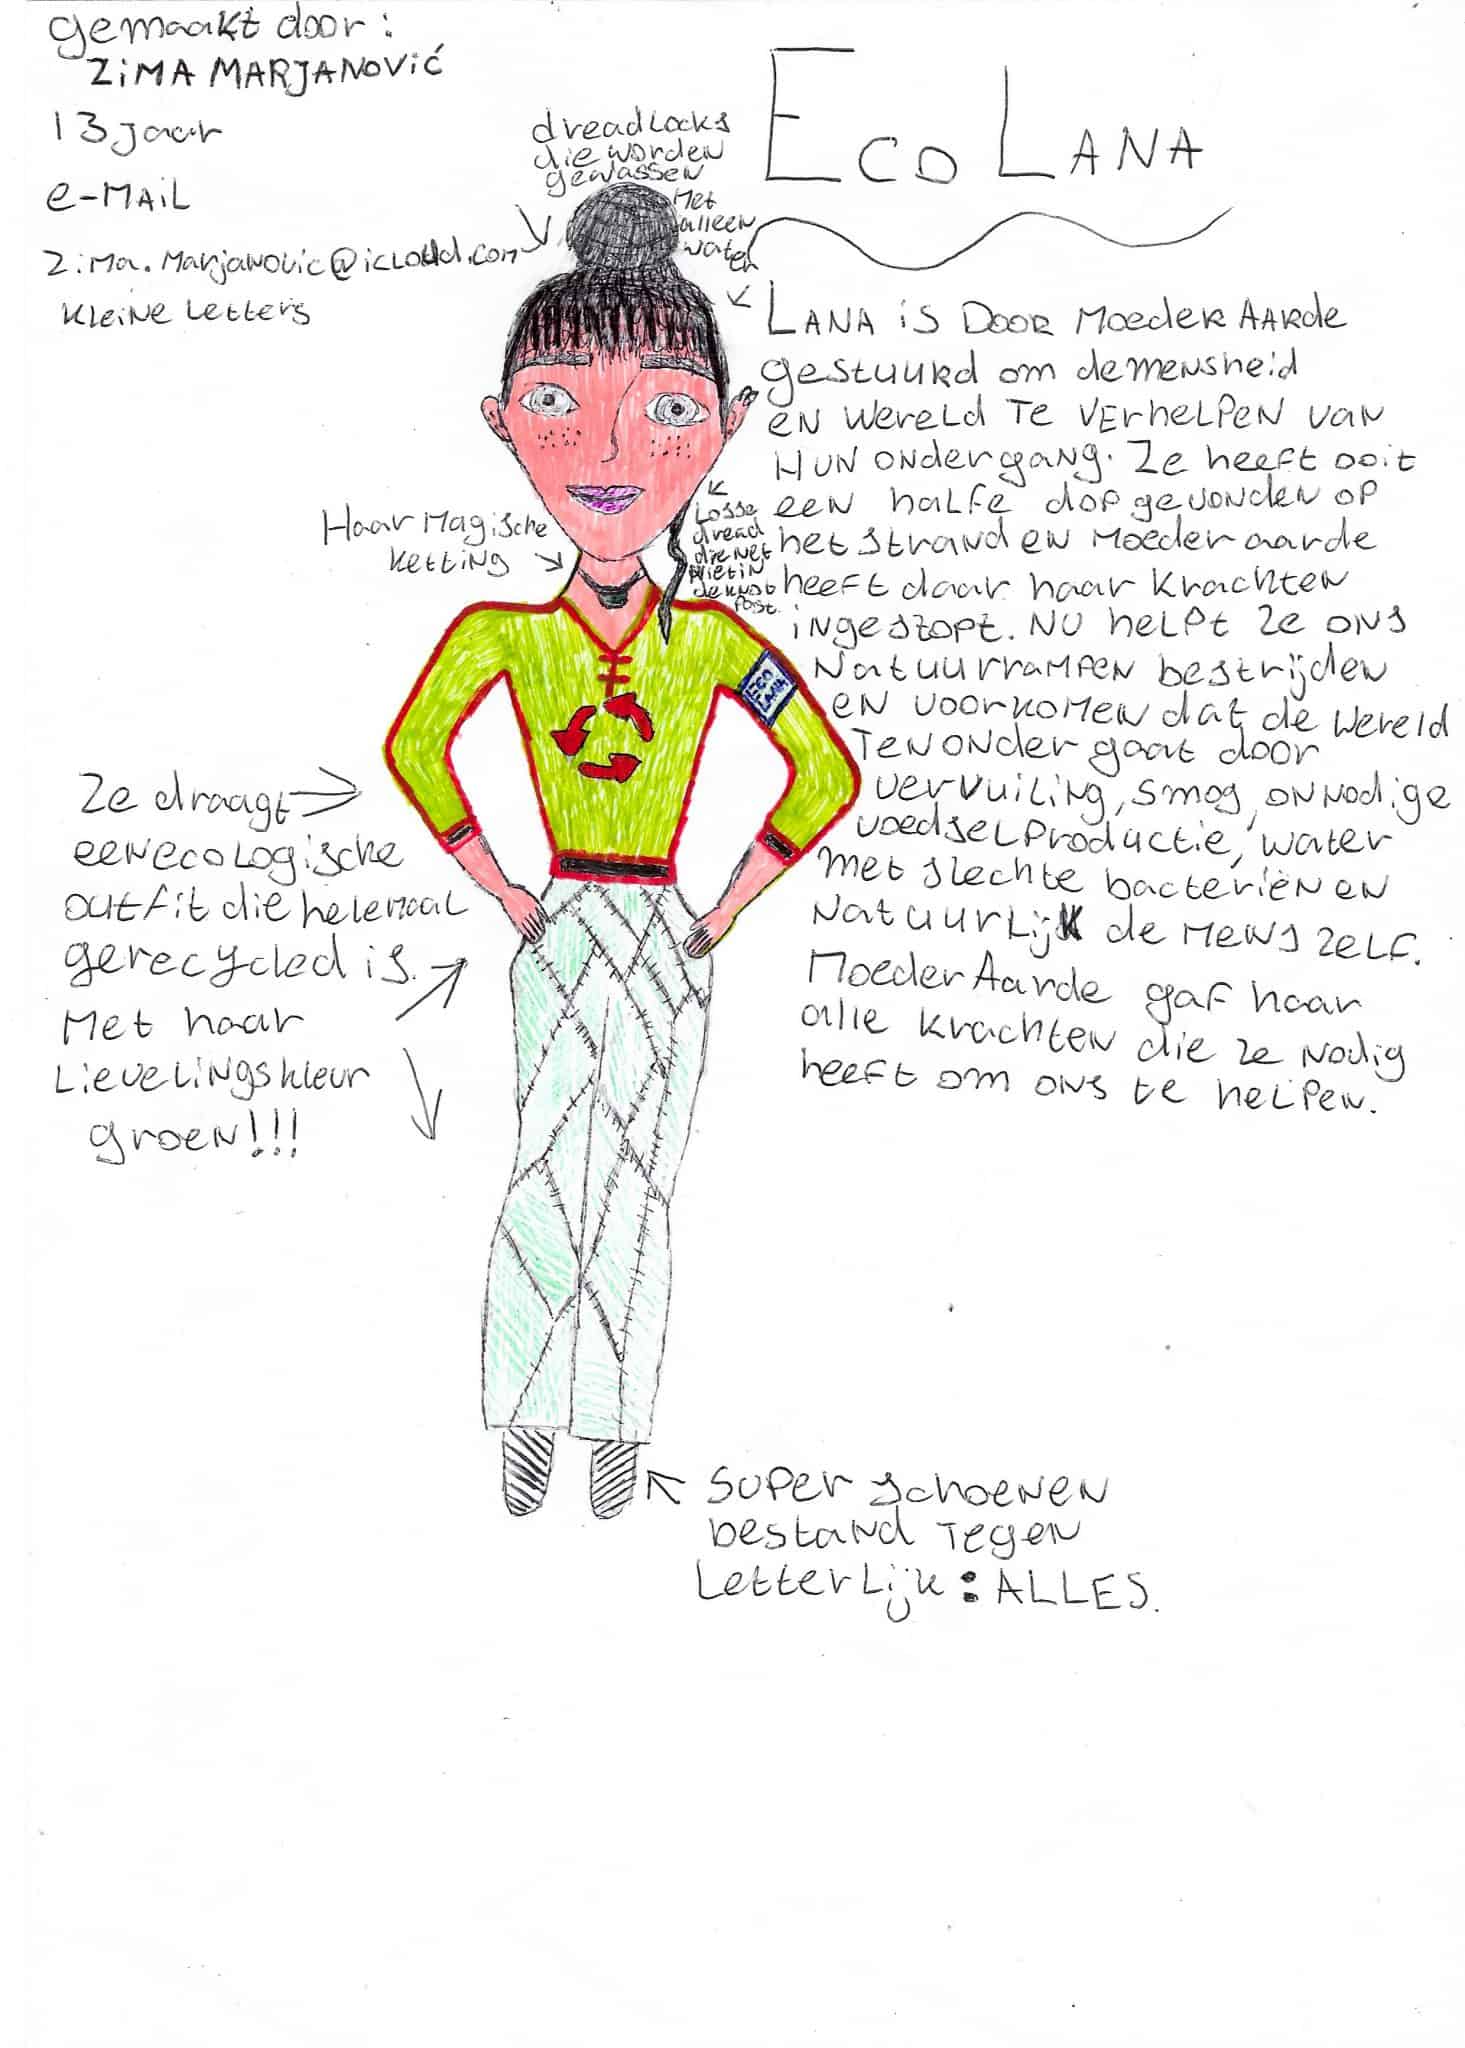 gemaakt door:
ZiMA MARJANOVić
13 jaar
e-MAiL
Zima.Marjanovic@icloud.com
kleine letters
ECO LANA
dreadlocks
die worden
gewassen
Met
alleen
water
LANA is DOOR Moeder AARde
gestuurd om de mensheid
en wereld te verhelpen van
Hun ondergang. Ze heeft ooit
een halfe dop gevonden op
het strand en Moeder aarde
heeft daar haar krachten
ingestopt. Nu helpt ze ons
Natuurrampen bestrijden
en voorkomen dat de wereld
ten onder gaat door
vervuiling, smog, onnodige
voedselproductie, water
met slechte bacteriën en
Natuurlijk de mens zelf.
Moeder Aarde gaf haar
alle krachten die ze nodig
heeft om ons te helpen.
Haar Magische
ketting
Losse
dread
die net
niet in
de knot
past.
ECO
LANA
Ze draagt
een ecologische
outfit die helemaal
gerecycled is.
Met haar
Lievelingskleur
groen!!!
super schoenen
bestand tegen
Letterlijk: ALLES.